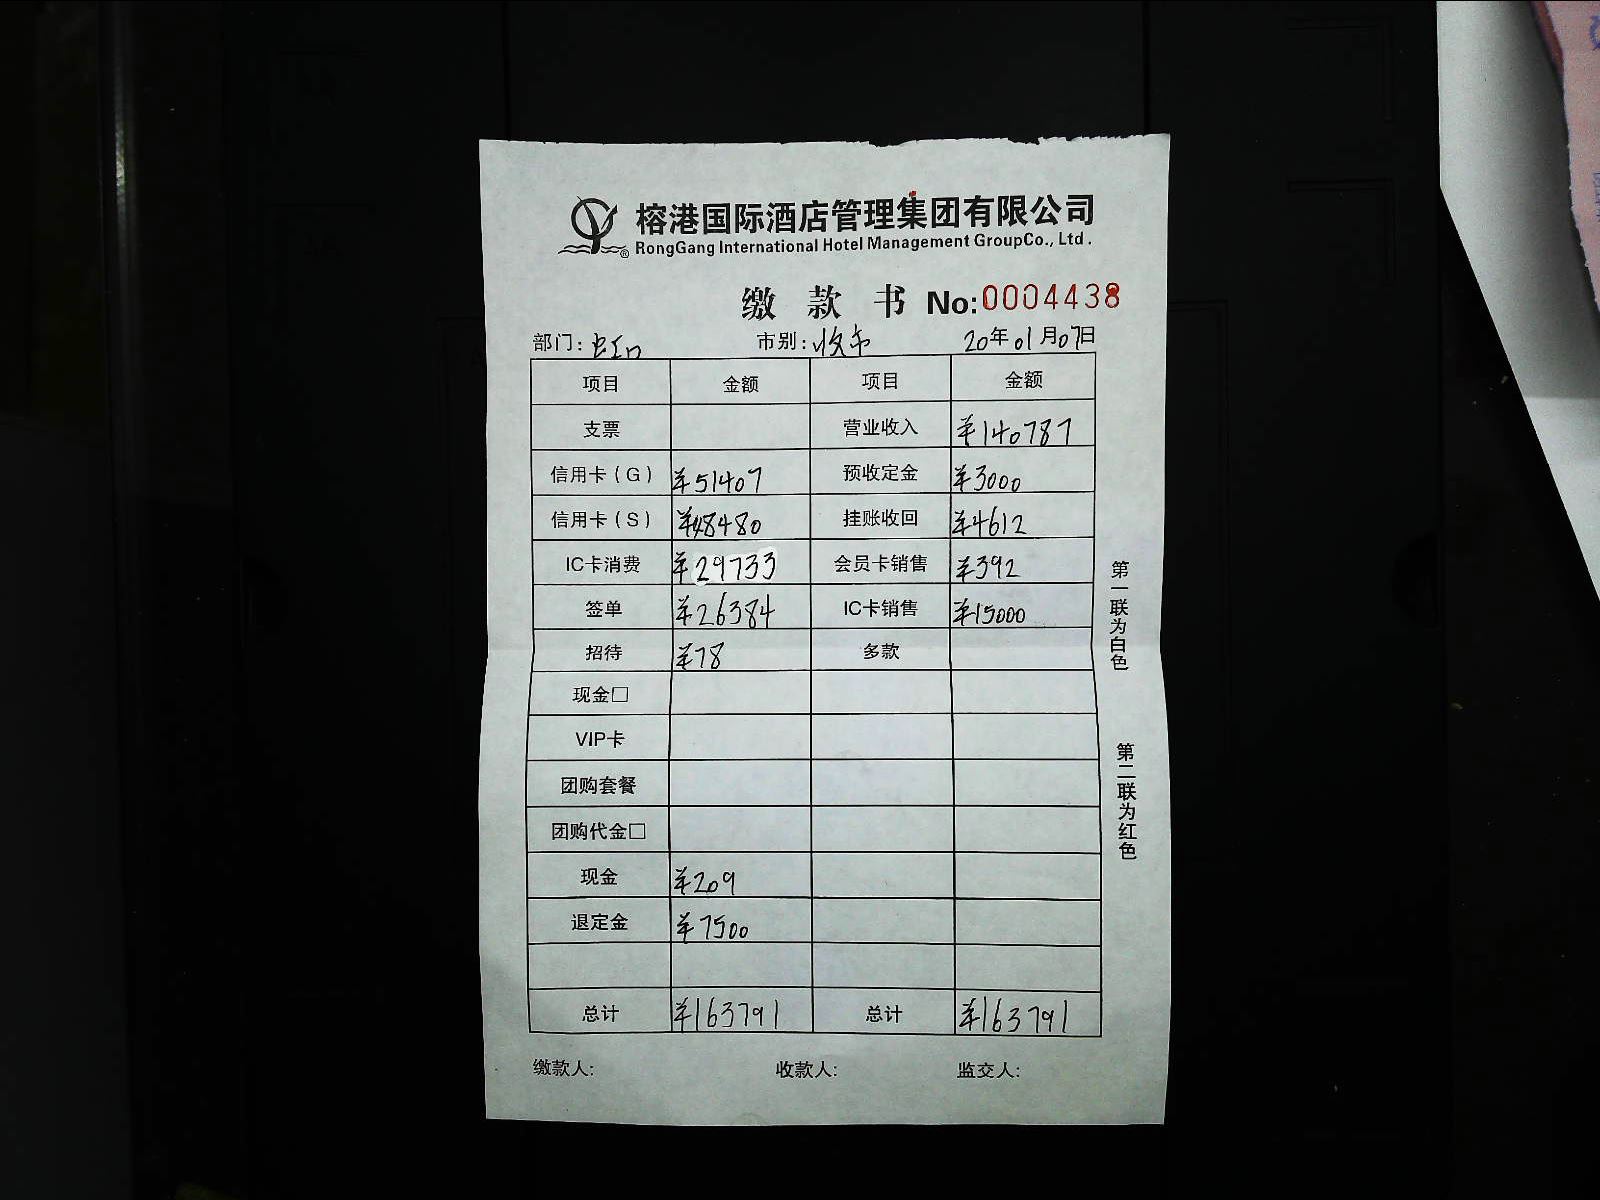 榕港国际酒店管理集团有限公司
RongGang International Hotel Management GroupCo., Ltd.
缴款书 No:0004438
部门: 虹口 市别: 收市 20年01月07日
项目 金额 项目 金额
支票 营业收入 ¥140787
信用卡(G) ¥51407 预收定金 ¥3000
信用卡(S) ¥48480 挂账收回 ¥4612
IC卡消费 ¥29733 会员卡销售 ¥392
签单 ¥26384 IC卡销售 ¥15000
招待 ¥78 多款
现金□
VIP卡
团购套餐
团购代金□
现金 ¥209
退定金 ¥7500
总计 ¥163791 总计 ¥163791
缴款人: 收款人: 监交人:
第一联为白色
第二联为红色